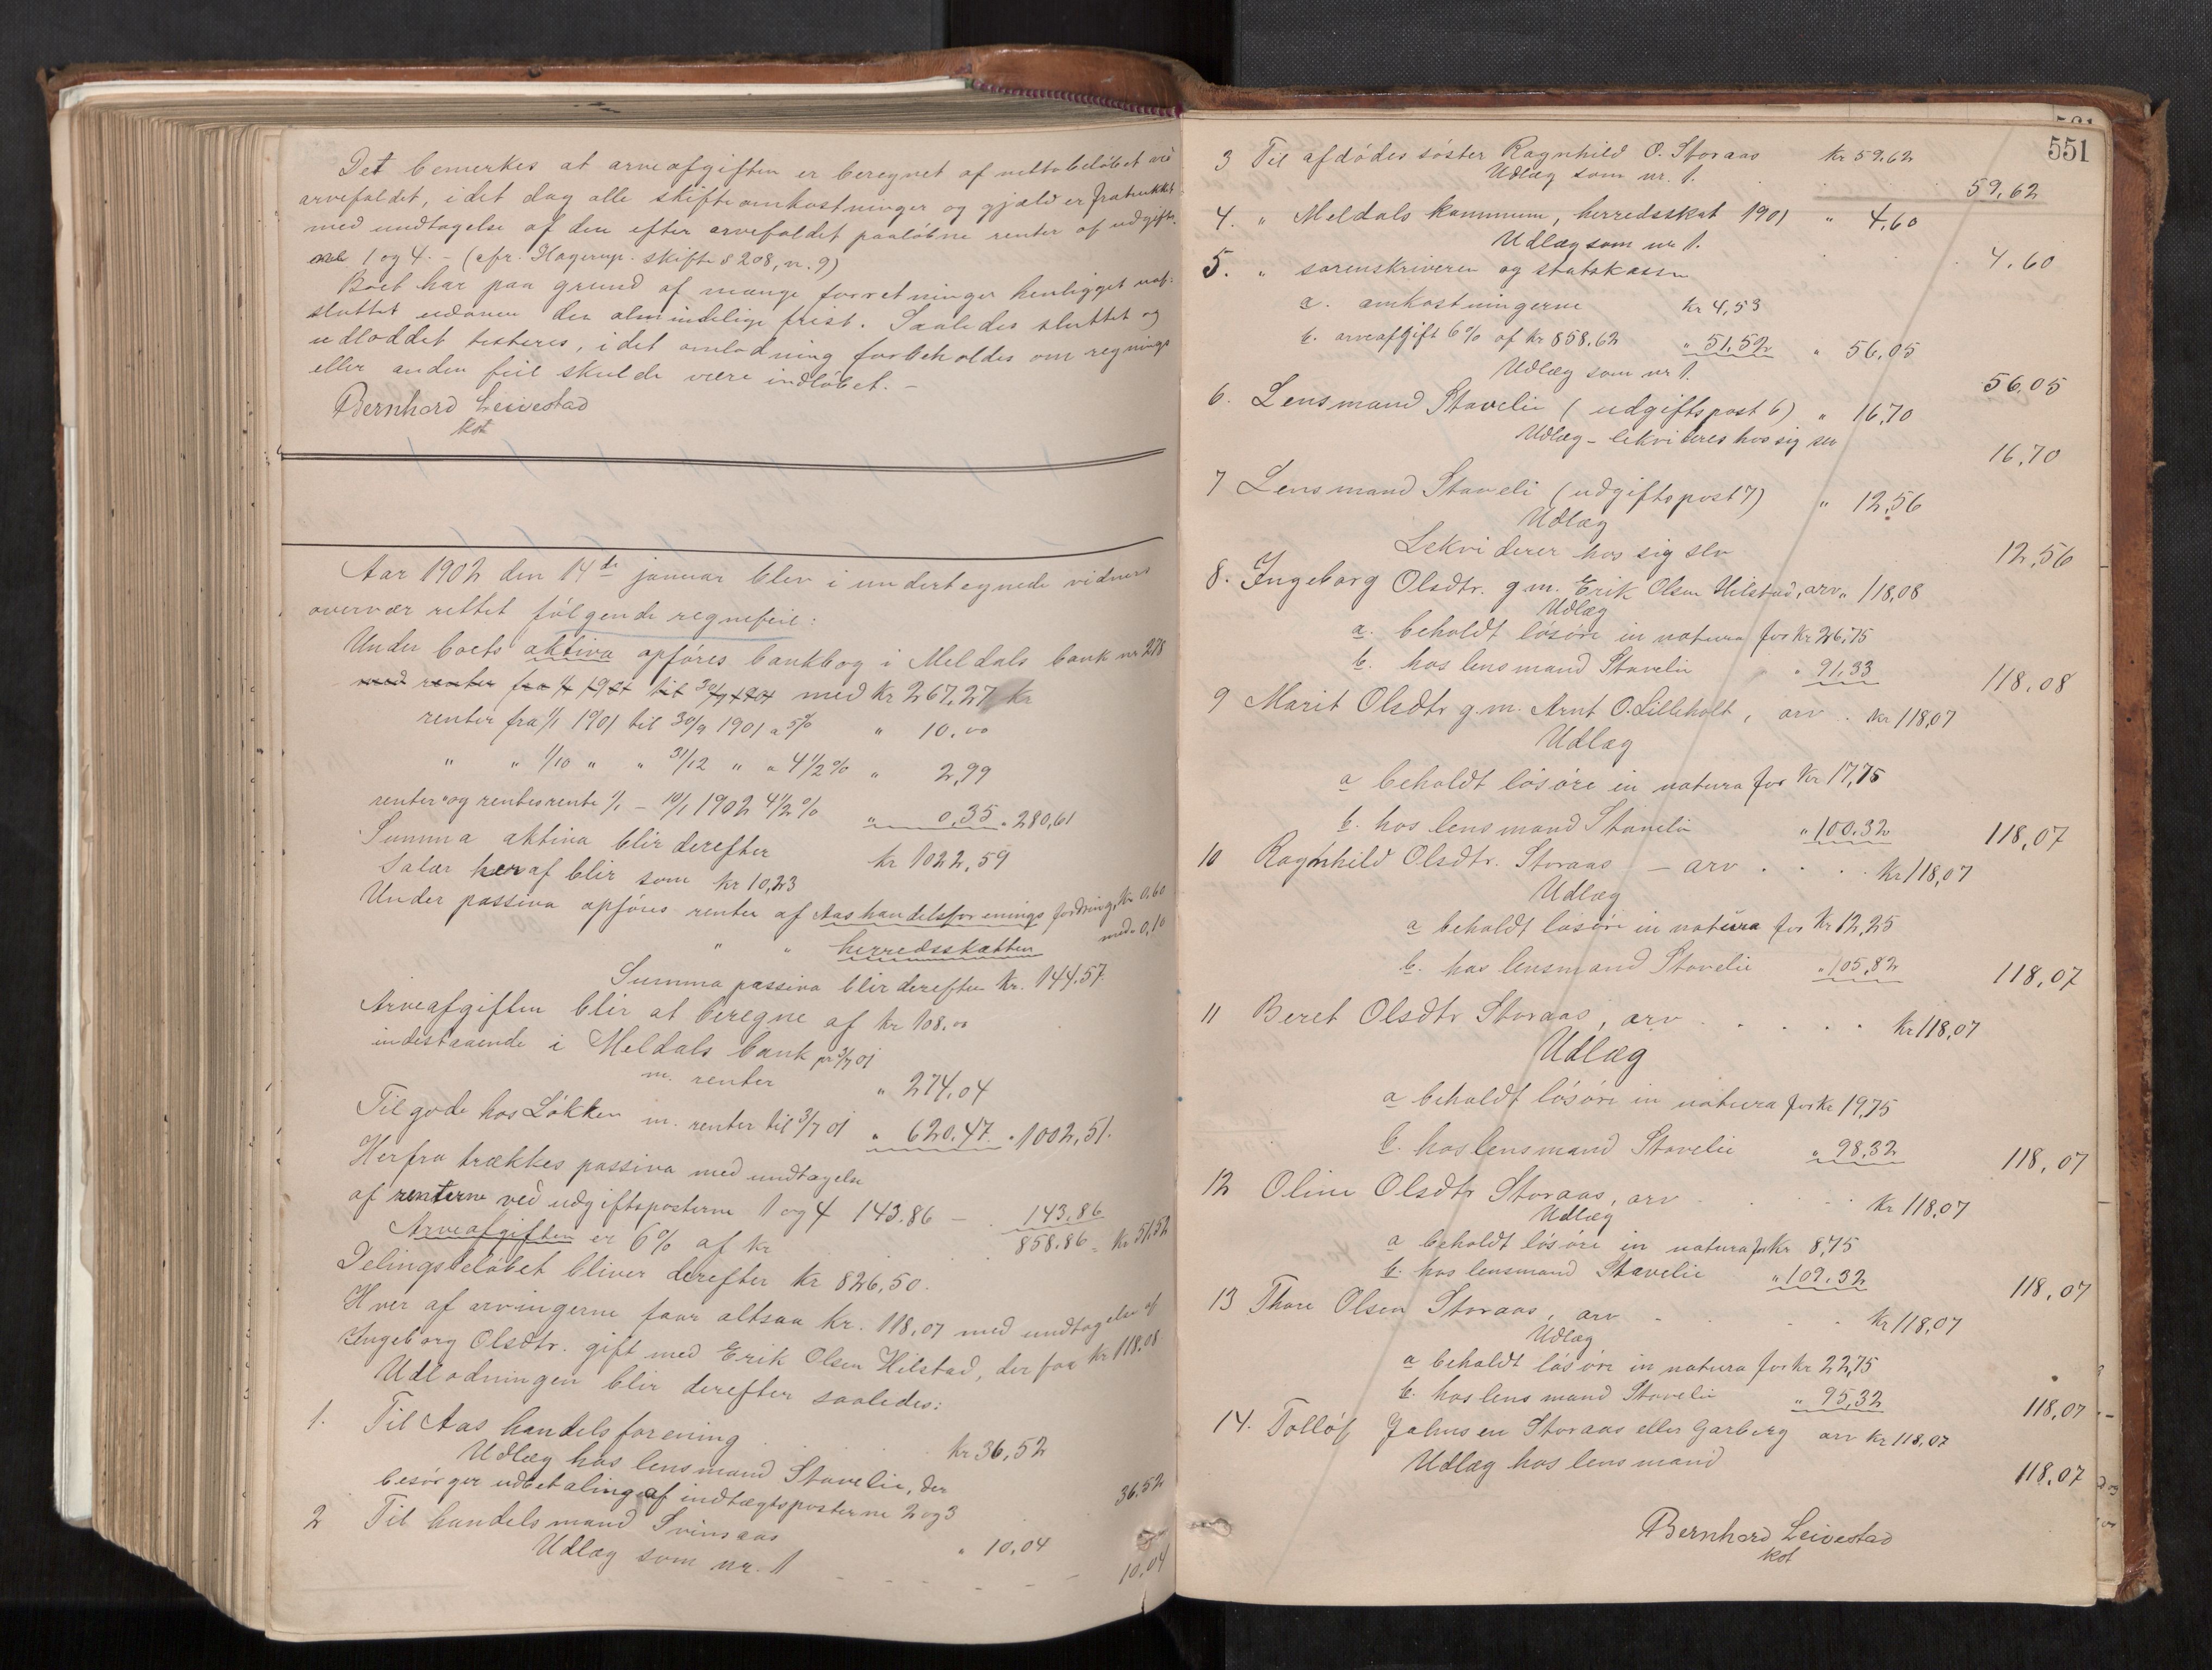 Det bemerkes at arveafgiften er beregnet af nettobeløbet ved
arvefaldet, idet dog alle skifteomkostninger og gjæld er fratrukket
med undtagelse af den efter arvefaldet paaløbne renter af udgifts-
no 1 og 4. - (cfr. Hagerup. skifte § 208, n. 9)
Boet har paa grund af mange forretninger henligget uaf-
sluttet udover den almindelige frist. Saaledes sluttet og
udloddet testeres, idet omlodning forbeholdes om regnings
eller anden feil skulde være indløbet. -
Bernhard Leivestad
kst
Aar 1902 den 14de januar blev i undertegnede vidners
overvær rettet følgende regnefeil:
Under boets aktiva opføres bankbog i Meldals bank nr 278
med renter fra 1/1 1901 til 30/9 1901 med kr 267,27 kr
renter fra 1/1 1901 til 30/9 1901 a 5% " 10.00
" " 1/10 " " 31/12 " a 4 1/2 % " 2,99
renter og rentesrente 1/1 - 10/1 1902 4 1/2 % " 0,35 " 280,61
Summa aktiva blir derefter kr 1022,59
Salær heraf blir som kr 10,23
Under passiva opføres renter af Aas handelsforenings fordring kr 0,60
" " herredsskatten med " 0,10
Summa passiva blir derefter kr. 144.57.
Arveafgiften blir at beregne af kr 108.00
indestaaende i Meldals bank pr 3/7 01
m. renter " 274,04
Tilgode hos Løkken m. renter til 3/7 01 " 620.47 " 1002,51.
Herfra trækkes passiva med undtagelse
af renterne ved udgiftsposterne 1 og 4 143.86 - . 143.86
Arveafgiften er 6% af kr 858.86 = kr 51,52
Delingsbeløbet bliver derefter kr 826,50.
Hver af arvingerne faar altsaa kr. 118,07 med undtagelse af
Ingeborg Olsdtr. gift med Erik Olsen Hilstad, der faar kr 118,08.
Udlodningen blir derefter saaledes:
1. Til Aas handelsforening kr 36,52
Udlæg hos lensmand Stavelie, der
besørger udbetaling af indtægtsposterne 2 og 3 36.52
2 Til handelsmand Svinsaas " 10,04
Udlæg som nr. 1 - - - - - - 10,04
551
3 Til afdødes søster Ragnhild O. Storaas kr 59,62
Udlæg som nr. 1. 59,62
4. " Meldals kommune, herredsskat 1901 " 4,60
Udlæg som nr 1. 4.60
5. " sorenskriveren og statskassen
a. omkostningerne kr 4,53
b. arveafgift 6% af kr 858.62 " 51,52 " 56,05
Udlæg som nr 1. 56,05
6. Lensmand Stavelie (udgiftspost 6) " 16,70
Udlæg - likvideres hos sig selv 16,70
7 Lensmand Staveli (udgiftspost 7) " 12,56
Udlæg
Lekviderer hos sig selv 12,56
8. Ingeborg Olsdtr. g.m. Erik Olsen Hilstad, arv " 118,08
Udlæg
a. beholdt løsøre in natura for kr 26,75
b. hos lensmand Stavelie " 91,33 118,08
9 Marit Olsdtr g.m. Arnt O. Lilleholt, arv . kr 118,07
Udlæg
a beholdt løsøre in natura for kr 17,75
b. hos lensmand Stavelie " 100.32 118,07
10 Ragnhild Olsdtr. Storaas - arv . . . . kr 118,07
Udlæg
a beholdt løsøre in natura for kr 12,25
b. hos lensmand Stavelie " 105,82 118,07
11 Beret Olsdtr Storaas, arv . . . . . kr 118,07
Udlæg
a beholdt løsøre in natura for kr 19,75
b. hos lensmand Stavelie " 98,32 118,07
12 Oline Olsdtr Storaas, arv . . . . kr 118,07
Udlæg
a beholdt løsøre in natura for kr 8,75
b. hos lensmand Stavelie " 109.32 118,07
13 Thore Olsen Storaas, arv . . . kr 118,07
Udlæg
a beholdt løsøre in natura for kr 22,75
b. hos lensmand Stavelie " 95,32 118,07
14. Tolløf Johnsen Storaas eller Garberg arv kr 118,07
Udlæg hos lensmand 118.07
Bernhard Leivestad
kst